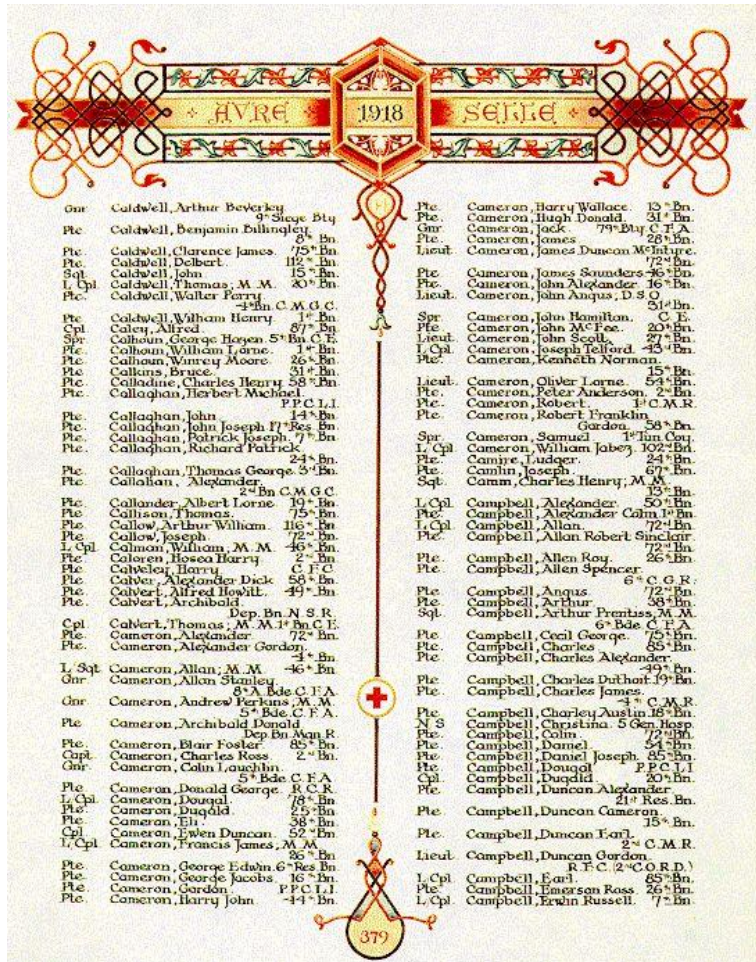 AVRE 1918 SELLE
Gnr Caldwell, Arthur Beverley
9th Siege Bty
Pte. Caldwell, Benjamin Billingley
8th Bn.
Pte. Caldwell, Clarence James. 75th Bn.
Pte. Caldwell, Delbert. 112th Bn.
Sgt. Caldwell, John 15th Bn.
L Cpl. Caldwell, Thomas; M.M. 20th Bn.
Pte. Caldwell, Walter Perry
4th Bn. C.M.G.C.
Pte Caldwell, William Henry. 1st Bn.
Cpl. Caley, Alfred. 87th Bn.
Spr. Calhoun, George Hazen. 5th Bn C.E.
Pte. Calhoun, William Lorne. 1st Bn.
Pte. Calhoun, Winrey Moore. 26th Bn.
Pte. Calkins, Bruce. 31st Bn.
Pte. Calladine, Charles Henry. 58th Bn.
Pte. Callaghan, Herbert Michael.
P.P.C.L.I.
Pte. Callaghan, John 14th Bn.
Pte. Callaghan, John Joseph. 17th Res. Bn.
Pte. Callaghan, Patrick Joseph. 7th Bn.
Pte. Callaghan, Richard Patrick
24th Bn.
Pte. Callaghan, Thomas George. 3rd Bn.
Pte. Callahan, Alexander.
2nd Bn C.M.G.C.
Pte. Callander, Albert Lorne. 19th Bn.
Pte. Callison, Thomas. 75th Bn.
Pte. Callow, Arthur William. 116th Bn.
Pte. Callow, Joseph. 72nd Bn.
L Cpl. Calman, William; M.M. 46th Bn.
Pte. Caloren, Hosea Harry 2nd Bn.
Pte. Calveley, Harry. C.F.C.
Pte. Calver, Alexander Dick 58th Bn.
Pte. Calvert, Alfred Howitt. 49th Bn.
Pte. Calvert, Archibald
Dep. Bn. N.S.R.
Cpl. Calvert, Thomas; M.M. 1st Bn. C.E.
Pte. Cameron, Alexander. 72nd Bn.
Pte. Cameron, Alexander Gordon.
4th Bn.
L/Sgt. Cameron, Allan; M.M. 46th Bn.
Gnr Cameron, Allan Stanley.
8th A. Bde. C.F.A.
Gnr. Cameron, Andrew Perkins; M.M.
5th Bde. C.F.A.
Pte Cameron, Archibald Donald
Dep. Bn. Man. R.
Pte. Cameron, Blair Foster. 85th Bn.
Capt. Cameron, Charles Ross. 2nd Bn.
Gnr. Cameron, Colin Lauchlin.
5th Bde. C.F.A
Pte Cameron, Donald George. R.C.R.
L Cpl. Cameron, Dougal. 78th Bn.
Pte. Cameron, Dugald. 25th Bn.
Pte. Cameron, Eli. 38th Bn.
Cpl. Cameron, Ewen Duncan. 52nd Bn.
L/Cpl. Cameron, Francis James; M.M
26th Bn.
Pte Cameron, George Edwin. 6th Res. Bn.
Pte. Cameron, George Jacobs. 16th Bn.
Pte. Cameron, Gordon. P.P.C.L.I.
Pte. Cameron, Harry John 44th Bn.
Pte. Cameron, Harry Wallace. 13th Bn.
Pte. Cameron, Hugh Donald. 31st Bn.
Gnr. Cameron, Jack. 79th Bty. C.F.A.
Pte. Cameron, James 28th Bn.
Lieut. Cameron, James Duncan McIntyre.
72nd Bn.
Pte Cameron, James Saunders 46th Bn.
Pte. Cameron, John Alexander. 16th Bn.
Lieut. Cameron, John Angus; D.S.O
31st Bn.
Spr. Cameron, John Hamilton. C.E.
Pte Cameron, John McFee. 20th Bn.
Lieut. Cameron, John Scott. 27th Bn.
L Cpl. Cameron, Joseph Telford. 43rd Bn.
Pte. Cameron, Kenneth Norman.
15th Bn.
Lieut. Cameron, Oliver Lorne. 54th Bn.
Pte. Cameron, Peter Anderson. 2nd Bn.
Pte. Cameron, Robert. 1st C.M.R.
Pte. Cameron, Robert Franklin
Gordon. 58th Bn.
Spr. Cameron, Samuel 1st Tun Coy.
L/Cpl. Cameron, William Jabez. 102nd Bn.
Pte. Camire, Ludger. 24th Bn.
Pte Camlin, Joseph. 67th Bn.
Sgt. Camm, Charles Henry; M.M.
13th Bn.
L Cpl. Campbell, Alexander. 50th Bn.
Pte. Campbell, Alexander Colin 1st Bn.
L Cpl. Campbell, Allan. 72nd Bn.
Pte. Campbell, Allan Robert Sinclair.
72nd Bn.
Pte. Campbell, Allen Roy. 26th Bn.
Pte. Campbell, Allen Spencer.
6th C.G.R.
Pte. Campbell, Angus. 72nd Bn.
Pte. Campbell, Arthur 38th Bn.
Sgt. Campbell, Arthur Prentiss, M.M.
6th Bde C.F.A.
Pte. Campbell, Cecil George. 75th Bn.
Pte. Campbell, Charles 85th Bn.
Pte. Campbell, Charles Alexander.
49th Bn.
Pte. Campbell, Charles Duthoit. 19th Bn.
Pte. Campbell, Charles James.
4th C.M.R.
Pte. Campbell, Charley Austin. 18th Bn.
N S Campbell, Christina. 5 Gen. Hosp.
Pte. Campbell, Colin. 72nd Bn.
Pte. Campbell, Daniel. 54th Bn.
Pte. Campbell, Daniel Joseph. 85th Bn.
Pte. Campbell, Dougal P.P.C.L.I
Cpl. Campbell, Dugald. 20th Bn.
Pte. Campbell, Duncan Alexander.
21st Res. Bn.
Pte. Campbell, Duncan Cameron.
15th Bn.
Pte. Campbell, Duncan Earl.
2nd C.M.R.
Lieut. Campbell, Duncan Gordon.
R.F.C. (2nd C.O.R.D.)
L Cpl. Campbell, Earl. 85th Bn.
Pte. Campbell, Emerson Ross. 26th Bn.
L/Cpl. Campbell, Erwin Russell. 7th Bn.
379